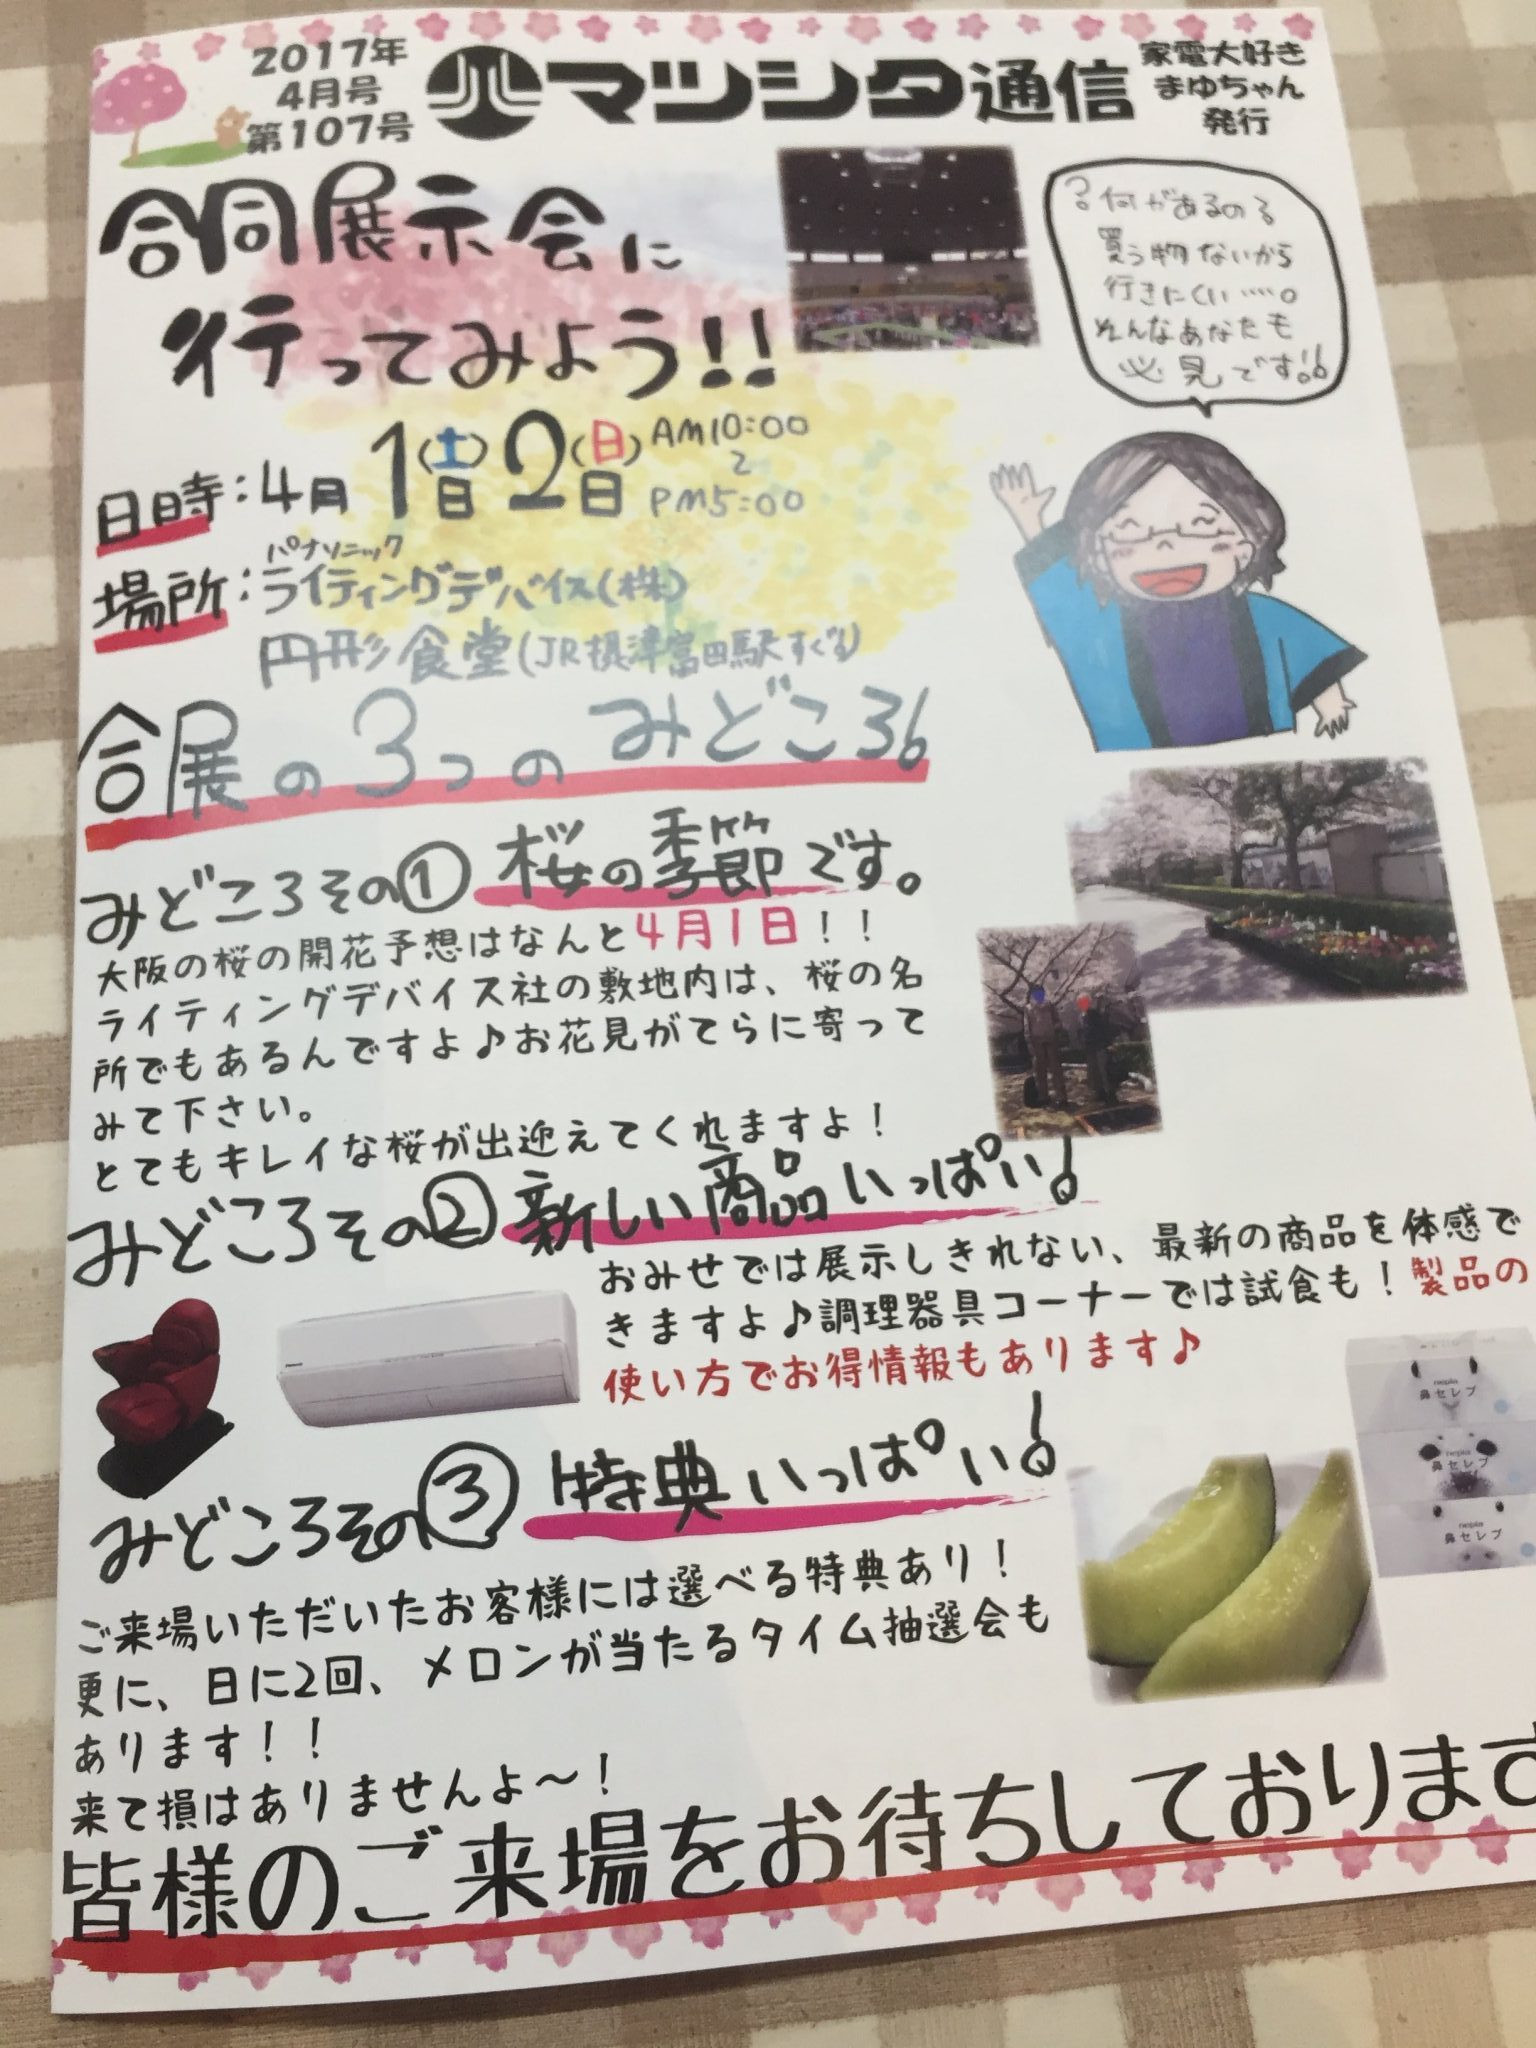 2017年
4月号
第107号
マツシタ通信
家電大好き
まゆちゃん
発行
合同展示会に
行ってみよう!!
?何があるの?
買う物ないから
行きにくい……。
そんなあなたも
必見です!!
日時:4月1日(土)2日(日)AM10:00
〜
PM5:00
パナソニック
場所:ライティングデバイス(株)
円形食堂(JR摂津富田駅すぐ)
合展の3つのみどころ
みどころその① 桜の季節です。
大阪の桜の開花予想はなんと4月1日!!
ライティングデバイス社の敷地内は、桜の名
所でもあるんですよ♪お花見がてらに寄って
みて下さい。
とてもキレイな桜が出迎えてくれますよ!
みどころその② 新しい商品いっぱい!
おみせでは展示しきれない、最新の商品を体感で
きますよ♪調理器具コーナーでは試食も!製品の
使い方でお得情報もあります♪
みどころその③ 特典いっぱい!
nepia
鼻セレブ
nepia
鼻セレブ
nepia
鼻セレブ
ご来場いただいたお客様には選べる特典あり!
更に、日に2回、メロンが当たるタイム抽選会も
あります!!
来て損はありませんよ〜!
皆様のご来場をお待ちしております